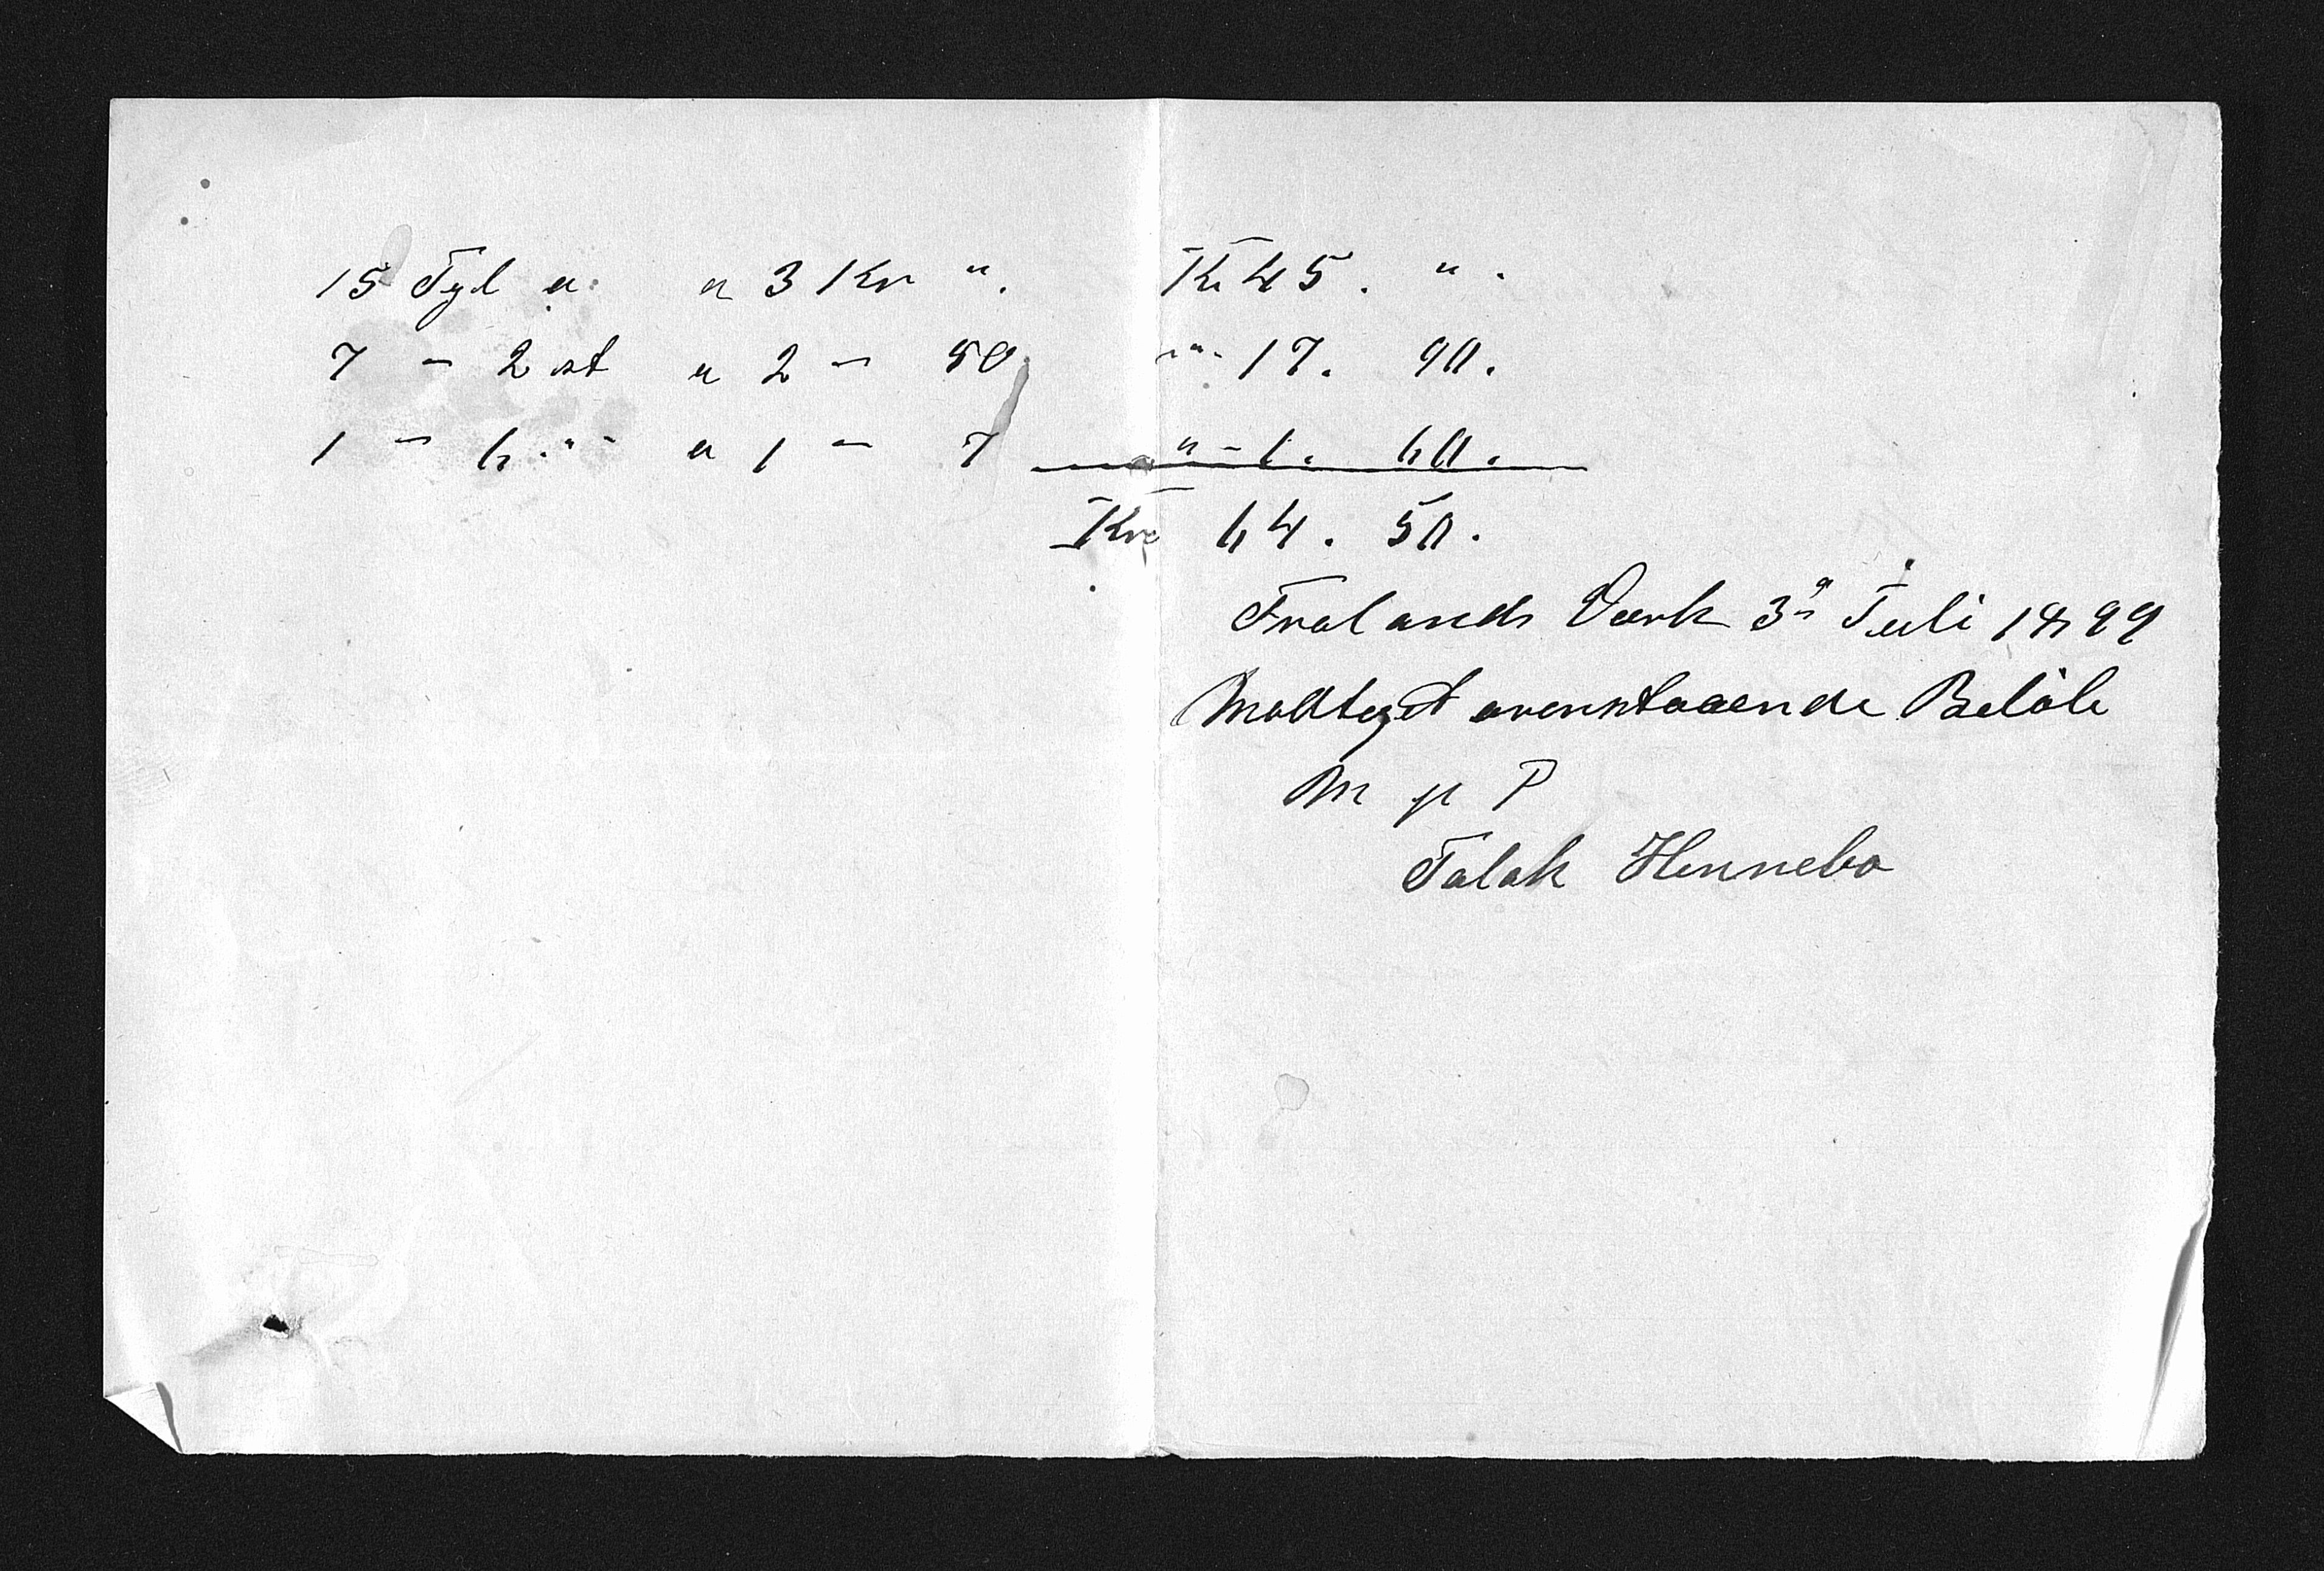 15 Tyl " a 3 Kr ". Kr 45. ".
7 – 2 st a 2 – 50 " 17. 90.
1 – 6 " – a 1 – 7 " – 1. 60.
Kr 64. 50.
Frolands Værk 3die Juli 1899
Modtaget ovenstaaende Beløb
M p P
Talak Hennebo